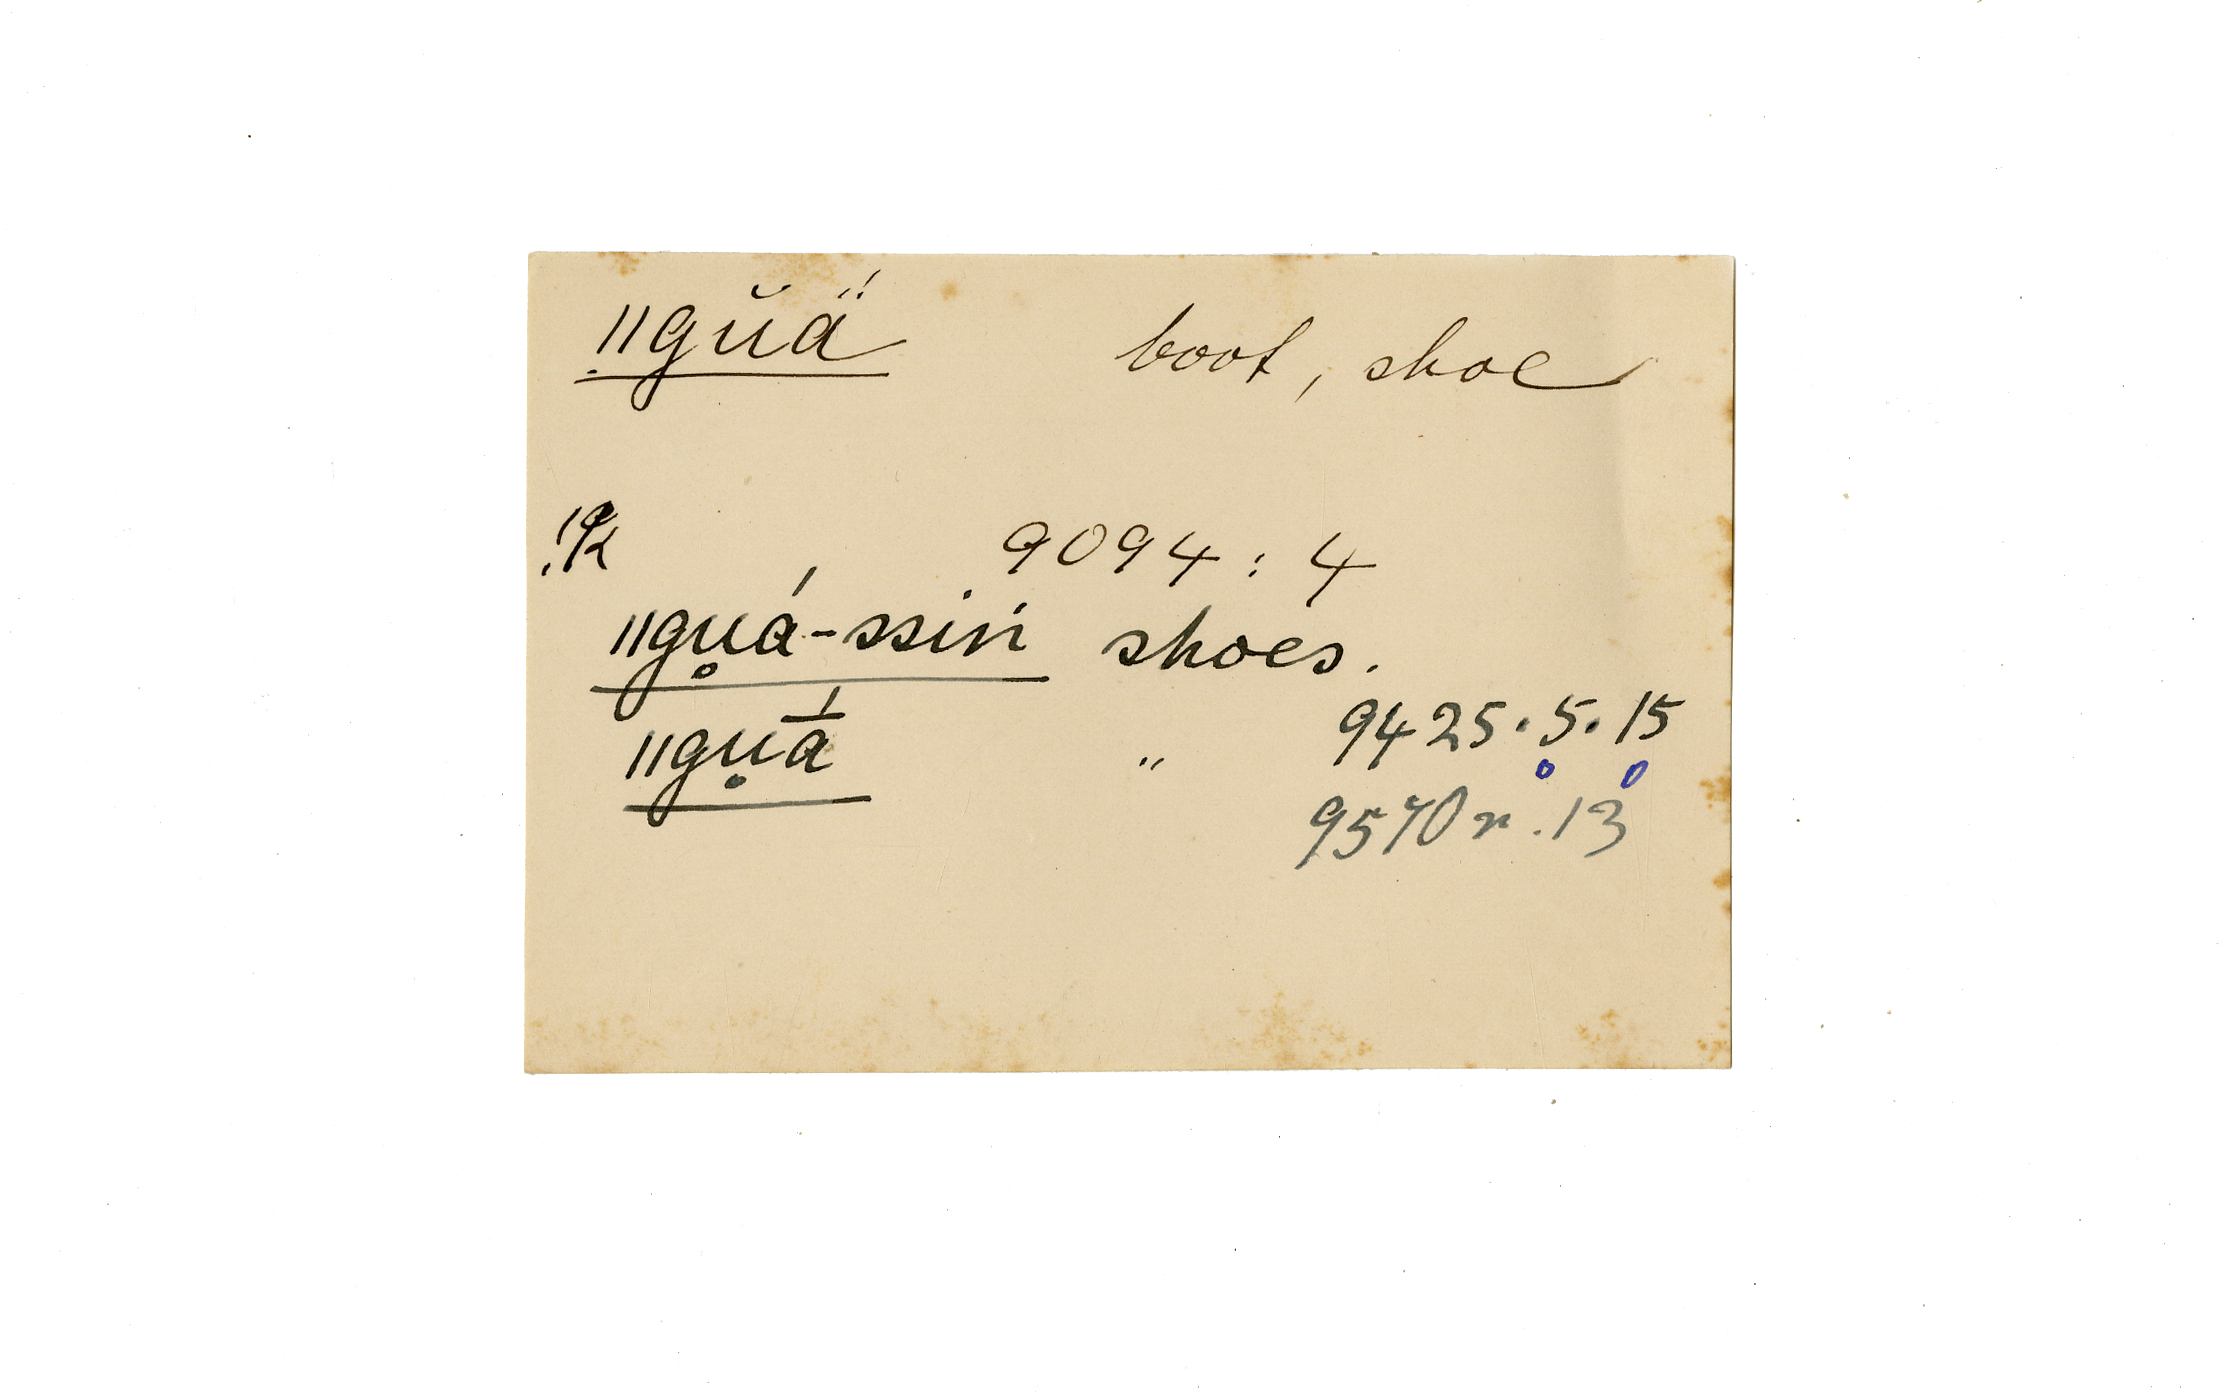 ǁgŭä́ boot, shoe
!k 9094 : 4
ǁgu̥á-ssiń shoes.
ǁgu̥ā́ " 9425 . 5 . 15
9570 r . 13